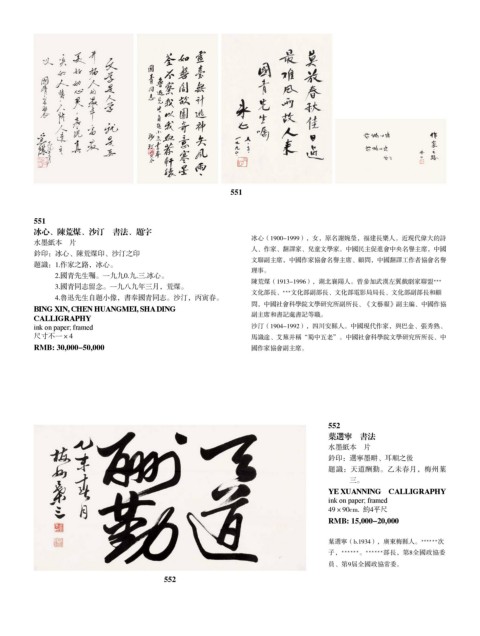 靈臺無計逃神矢風雨
如磐闇故園寄意寒星
荃不察我以我血薦軒轅
莫放春秋佳日過
最難風雨故人來
國青先生囑
冰心
作家之路
551
551
冰心、陳荒煤、沙汀　書法、題字
水墨紙本　片
鈐印：冰心、陳荒煤印、沙汀之印
題識：1.作家之路，冰心。
2.國青先生囑。一九九0.九.三.冰心。
3.國青同志留念。一九八九年三月，荒煤。
4.魯迅先生自題小像，書奉國青同志。沙汀，丙寅春。
BING XIN, CHEN HUANGMEI, SHA DING
CALLIGRAPHY
ink on paper; framed
尺寸不一 × 4
RMB: 30,000-50,000
冰心（1900-1999），女，原名謝婉瑩，福建長樂人。近現代偉大的詩
人、作家、翻譯家、兒童文學家。中國民主促進會中央名譽主席，中國
文聯副主席，中國作家協會名譽主席、顧問，中國翻譯工作者協會名譽
理事。
陳荒煤（1913-1996），湖北襄陽人。曾參加武漢左翼戲劇家聯盟***
文化部長、***文化部副部長、文化部電影局局長、文化部副部長和顧
問，中國社會科學院文學研究所副所長、《文藝報》副主編、中國作協
副主席和書記處書記等職。
沙汀（1904-1992），四川安縣人。中國現代作家，與巴金、張秀熟、
馬識途、艾蕪并稱“蜀中五老”。中國社會科學院文學研究所所長、中
國作家協會副主席。
天道
酬勤
乙未春月
梅州葉三
552
552
葉選寧　書法
水墨紙本　片
鈐印：選寧墨緣、耳順之後
題識：天道酬勤。乙未春月，梅州葉
三。
YE XUANNING　CALLIGRAPHY
ink on paper; framed
49 × 90cm. 約4平尺
RMB: 15,000-20,000
葉選寧（b.1934），廣東梅縣人。******次
子，******。******部長、第8全國政協委
員、第9屆全國政協常委。